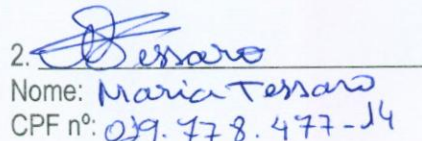 2. Tessaro
Nome: Maria Tessaro
CPF nº: 039.778.477-14